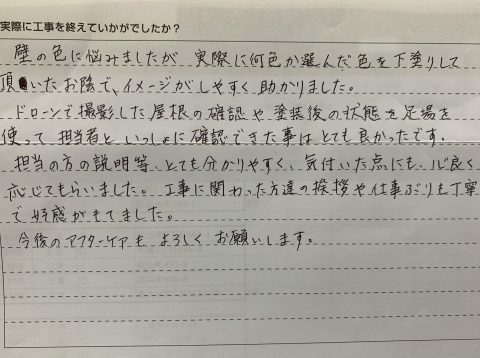 実際に工事を終えていかがでしたか？
壁の色に悩みましたが 実際に何色か選んだ色を下塗りして
頂いたお陰で、イメージがしやすく助かりました。
ドローンで撮影した屋根の確認や塗装後の状態を足場を
使って担当者といっしょに確認できた事はとても良かったです。
担当の方の説明等、とても分かりやすく、気付いた点にも、心良く
応じてもらいました。工事に関わった方達の挨拶や仕事ぶりも丁寧
で好感がもてました。
今後のアフターケアもよろしくお願いします。